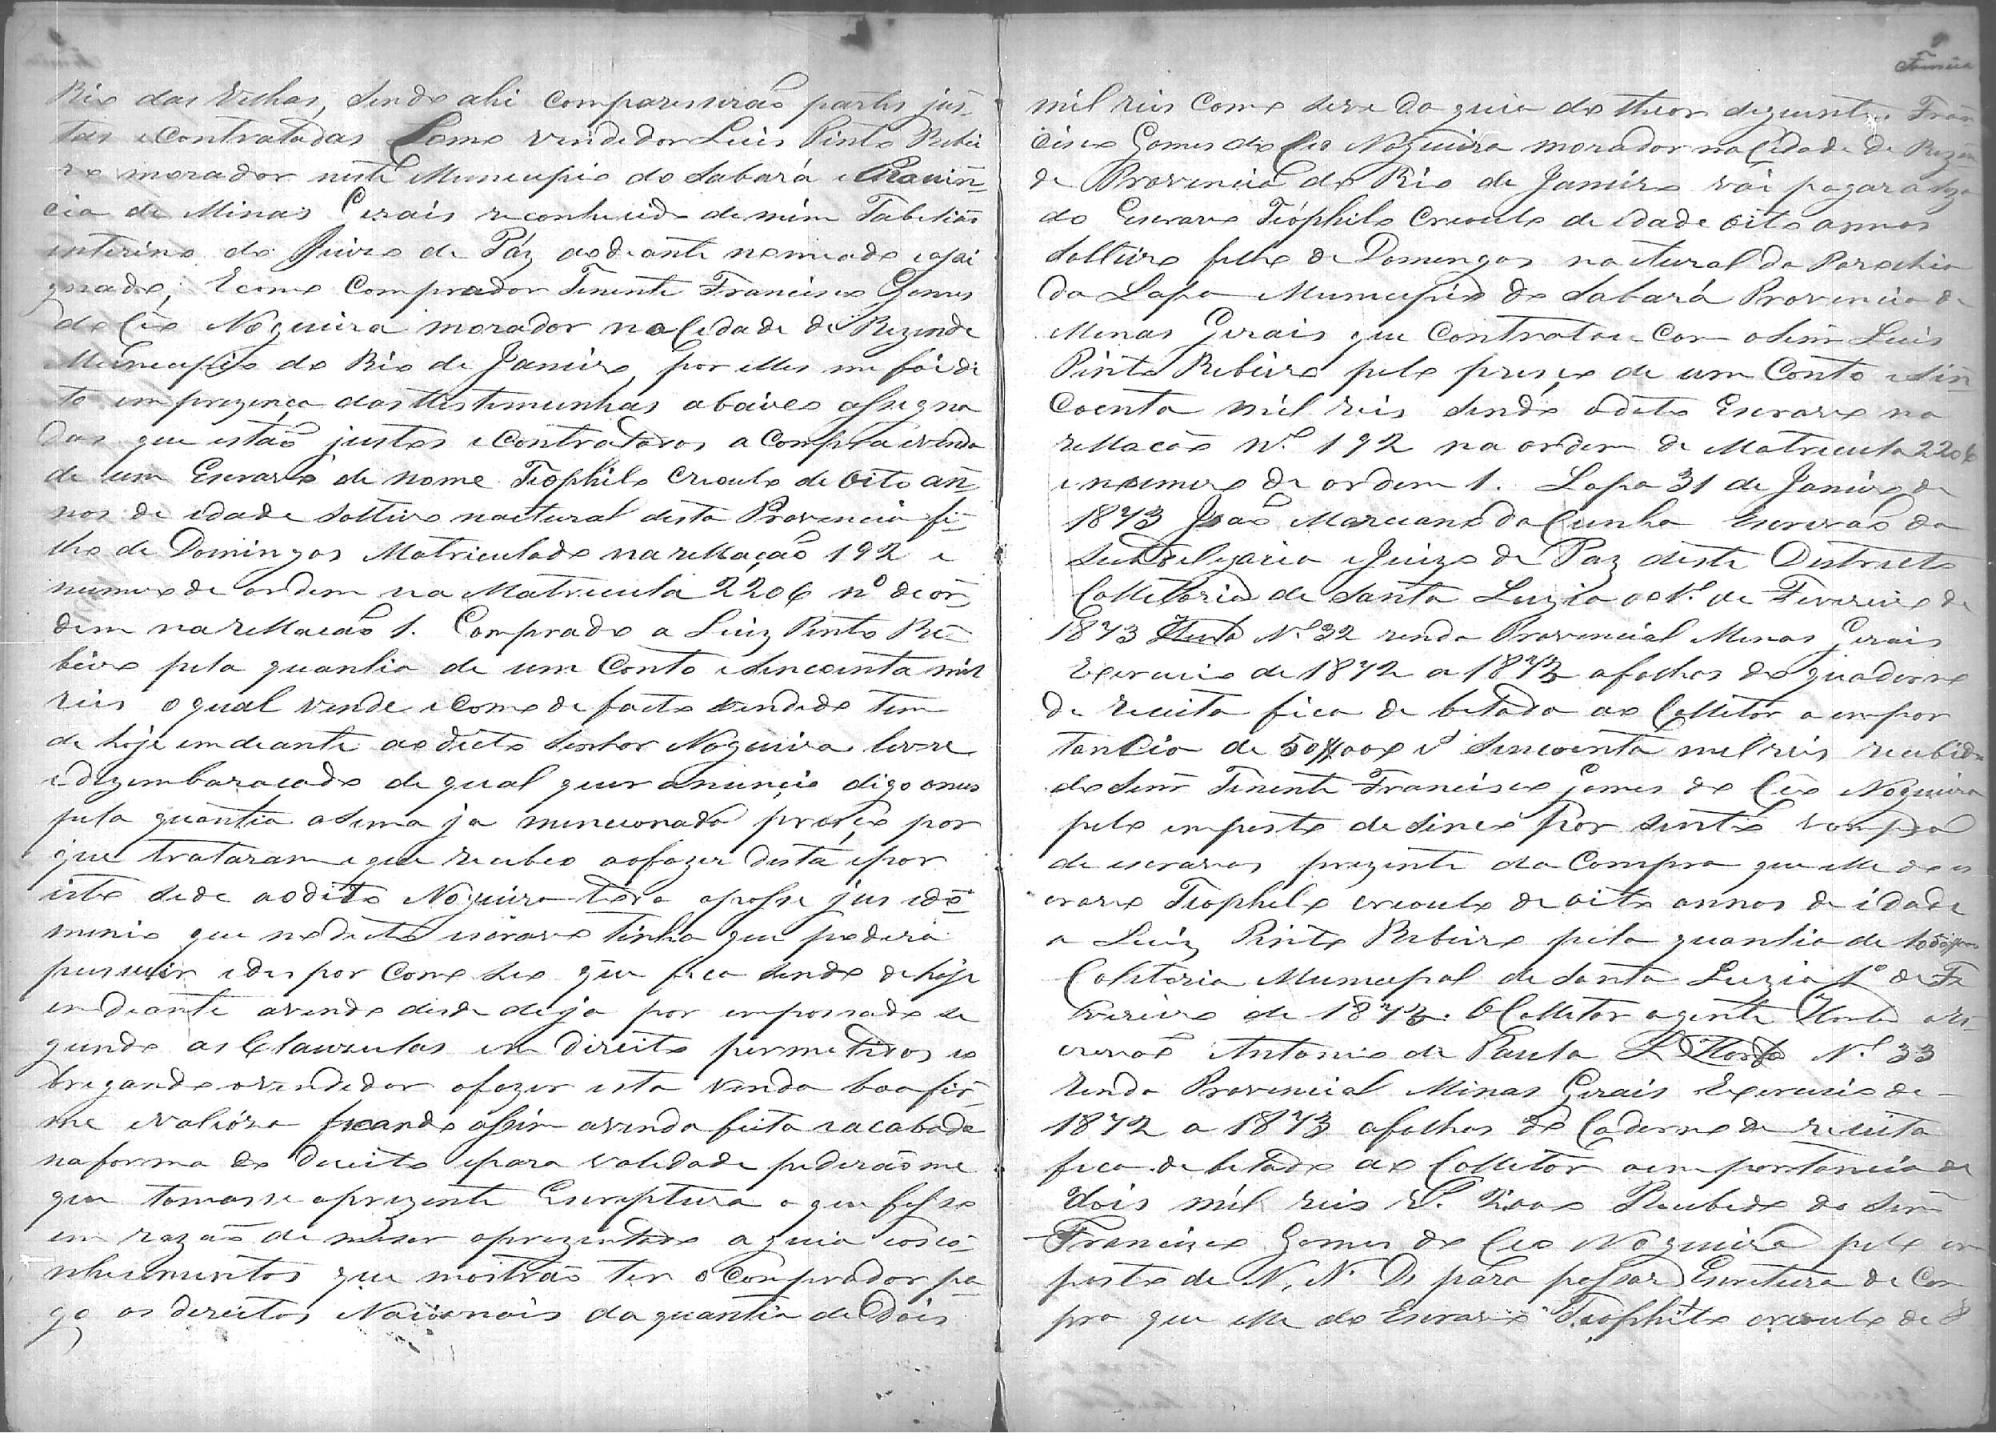 Rio das Velhas, sendo ahi comparesserão partes jus-
tas e contratadas Como vendedor Luis Pinto Ribei
ro morador neste Municipio do Sabará e Provin-
cia de Minas Gerais reconhecido de mim Tabelião
interino do Juizo de Paz aodeante nomeado e assi
gnado, E como Comprador Tenente Francisco Gomes
do Nogueira morador na Cidade de Rezende
Municipio do Rio de Janeiro, por elles me foi di
to em prezença das testemunhas abaixo assigna
das que estão justos e Contratados a compra e venda
de um Escravo de nome Teophilo creoulo de oito an-
nos de idade solteiro natural desta Provencia fi-
lho de Domingas Matriculado na rellação 192 e
numero de ordem na Matricula 2206 nº de or-
dem na rellação 1. Comprado a Luiz Pinto Ri-
beiro pela quantia de um Conto e sincoenta mil
reis o qual vende e como de facto vendido tem
de hoje em deante ao dicto Senhor Nogueira livre
e dezembaraçado de qual quer anuncio digo onus
pela quantia asima ja mencionada preço por
que trataram e que recebeo ao fazer desta e por
isto cede ao dito Nogueira toda a posse jus e do-
minio que no dicto escravo tinha que poderá
pussuir e des por Como seo que fica sendo de hoje
em deante avendo desde de ja por empossado se
gundo as Clauzulas em direito permetidos o
brigando o vendedor a fazer esta venda boa fir-
me e valióza ficando assim a venda feita e acabada
na forma do direito e para validade pedirão me
que tomasse a prezente Escreptura o que fis
em razão de me ser aprezentado a guia e os co-
nhecimentos que mostrão ter o Comprador pa-
go os direitos Nacionais da quantia de Dois
mil reis como se ve da guia do theor seguinte Fran
cisco Gomes do Nogueira morador na Cidade de Rezen
de Provincia do Rio de Janeiro vai pagar a siza
do Escravo Teóphilo Creoulo de idade oito annos
Solteiro filho de Domingas natural da Parochia
da Lapa Municipio do Sabará Provincia de
Minas Gerais que Contratou com o Senr Luis
Pinto Ribeiro pelo preso de um Conto e sin
coenta mil reis sendo o dito Escravo na
rellacão nº 192 na ordem de Matricula 2206
e numero de ordem 1. Lapa 31 de Janeiro de
1873 João Marciano da Cunha Escrivão da
Subdelegacia e Juizo de Paz deste Districto
Colletoria de Santa Luzia ao 1º de Fevereiro de
1873 Nº 32 renda Provencial Minas Gerais
Exercicio de 1872 a 1873 a folhas do quaderno
de receita fica debetada ao Colletor a empor
tancia de sincoenta mil reis recebido
do Senr Tenente Francisco Gomes do Nogueira
pelo emposto de sinco por sento
de escravos prezente da Compra que elle do es
cravo Teophilo creoulo de oito annos de idade
a Luiz Pinto Ribeiro pela quantia de
Coletoria Municipal de Santa Luzia 1º de Fe
vereiro de 1873. O Colletor agente o es
crivão Antonio de Paula Nº 33
renda Provencial Minas Gerais Exercicio de
1872 a 1873 a folhas do Caderno de receita
fica debetado ao Colletor a emportancia de
dois mil reis Recebido do Senr
Francisco Gomes do Nogueira pelo im
posto de N. N. Ds para passar Escritura de Com
pra que elle do Escravo Teophilo creoulo de 8